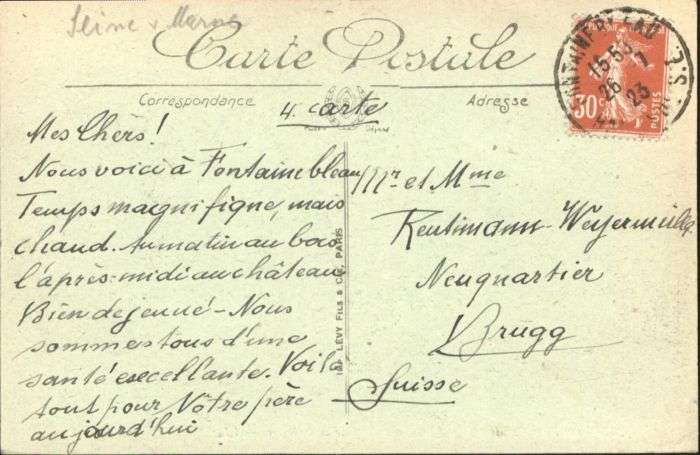 Seine & Marne
Carte Postale
Correspondance
4. carte
Adresse
FONTAINEBLEAU
15·55
26 7
23
30c
POSTES
Mes Chèrs!
Nous voici à Fontainebleau
Temps magnifique, mais
chaud. Au matin au bois
l'après-midi au château
Bien dejeuné – Nous
sommes tous d'une
santé excellante. Voilà
tout pour Vôtre père
aujourd'hui
IMP. LEVY FILS & CIE, PARIS
Mr et Mme
Reutimann-Weyermüller
Neuquartier
Brugg
Suisse